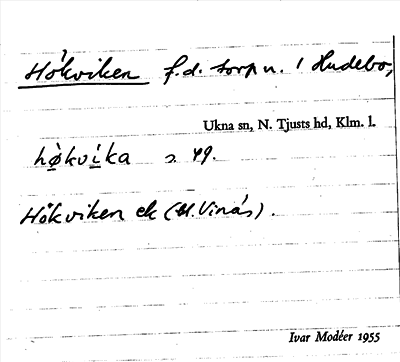 Hökviken f.d. torp u. / Hudebo,
Ukna sn, N. Tjusts hd, Klm. l.
hø̀kvi̱ka s. 49.
Hökviken ek (St. Vinäs).
Ivar Modéer 1955